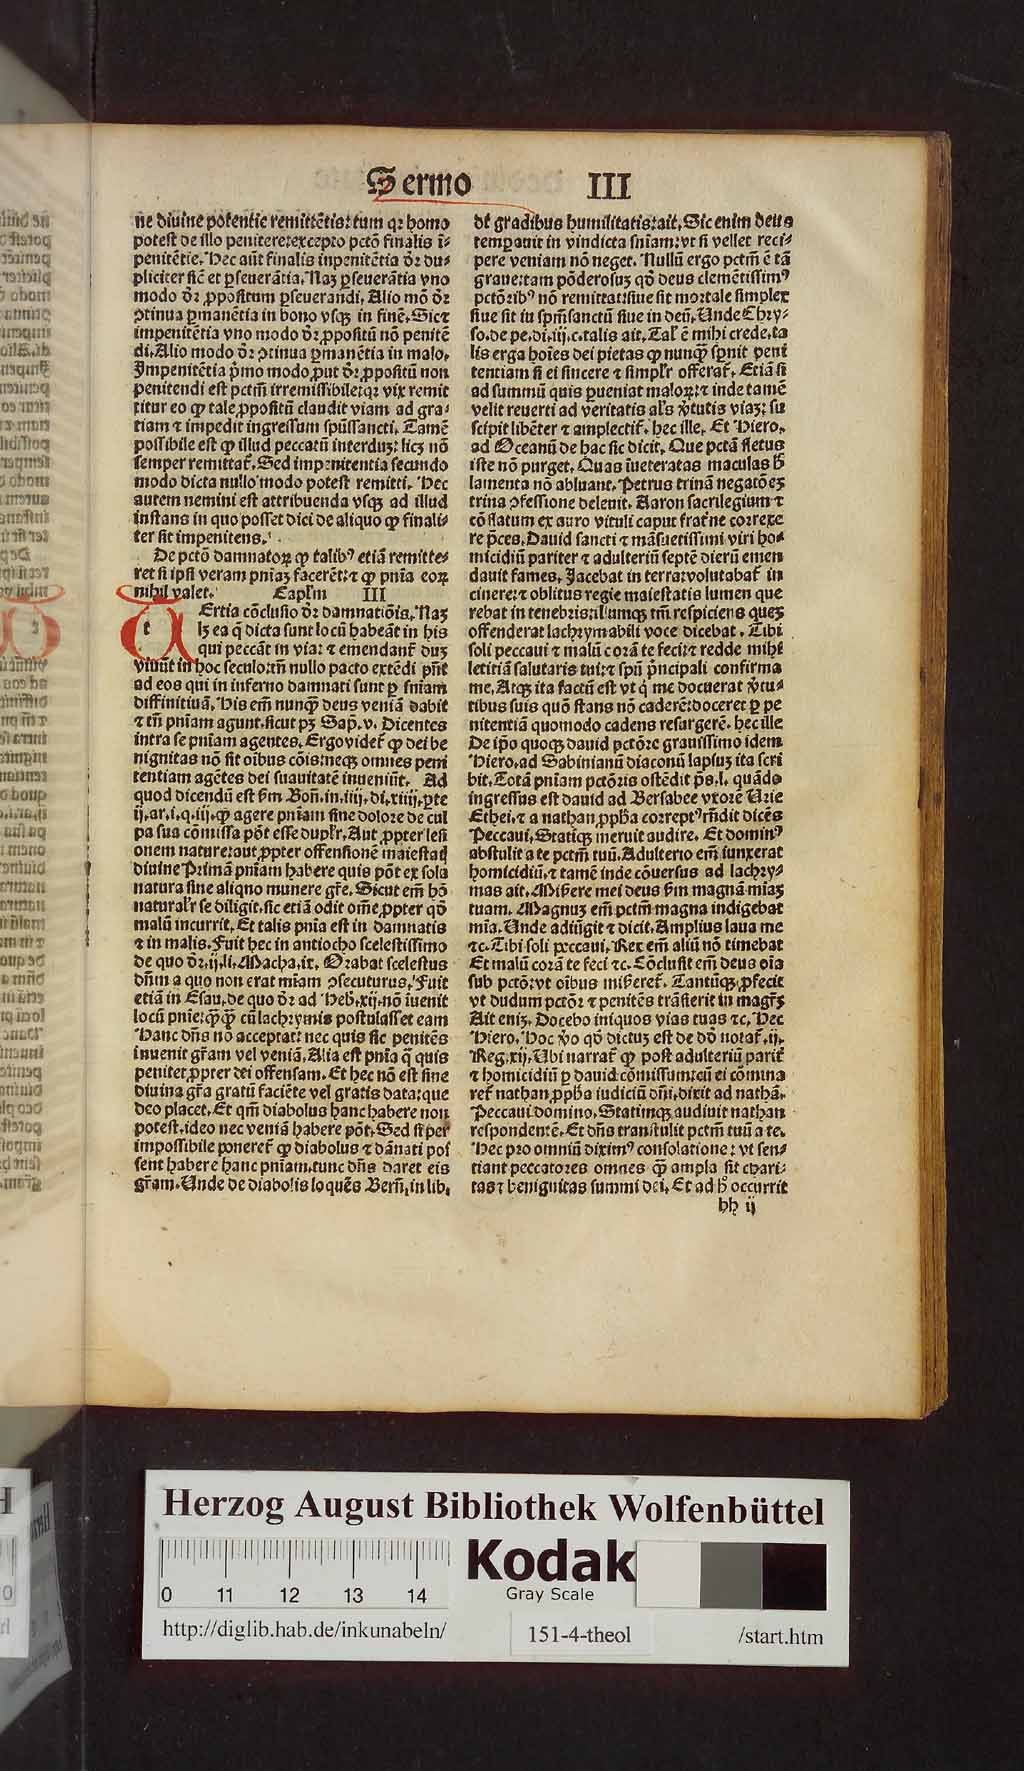 Sermo III
ne diuine potentie remittẽtis: tum qꝛ homo
potest de illo penitere: excepto pctõ finalis ĩ-
penitẽtie. Hec aũt finalis inpenitẽtia dꝛ du-
pliciter sic̃ et ꝑseuerãtia. Naꝫ ꝑseuerãtia vno
modo dꝛ ꝓpositum ꝑseuerandi. Alio mõ dꝛ
ↄtinua ꝑmanẽtia in bono vsqꝫ in finẽ. Sic ⁊
impenitẽtia vno modo dꝛ ꝓpositũ nõ penitẽ
di. Alio modo dꝛ ↄtinua ꝑmanẽtia in malo.
Impenitẽtia p̃mo modo ꝓut dꝛ ꝓpositũ non
penitendi est pctm̃ irremissibile: qꝛ vix remit
titur eo ꝙ tale ꝓpositũ claudit viam ad gra-
tiam ⁊ impedit ingressum spũssancti. Tamẽ
possibile est ꝙ illud peccatũ interduꝫ: licꝫ nõ
semper remittat᷑. Sed impenitentia secundo
modo dicta nullo modo potest remitti. Hec
autem nemini est attribuenda vsqꝫ ad illud
instans in quo posset dici de aliquo ꝙ finali-
ter sit impenitens.
De pctõ damnatoꝝ ꝙ talibꝰ etiã remitte-
ret si ipsi veram pniaꝫ facerẽt: ⁊ ꝙ pnia eoꝝ
nihil valet. Capl̃m III
t Ertia cõclusio dꝛ damnatiõis. Naꝫ
lꝫ ea q̃ dicta sunt locũ habeãt in his
qui peccãt in via: ⁊ emendant᷑ duꝫ
viuũt in hoc seculo: tñ nullo pacto extẽdi pñt
ad eos qui in inferno damnati sunt ꝑ sñiam
diffinitiuã. His em̃ nunqꝫ̃ deus veniã dabit
⁊ tñ pñiam agunt. sicut pꝫ Sap̃. v. Dicentes
intra se pñiam agentes. Ergo videt᷑ ꝙ dei be
nignitas nõ sit oĩbus cõis: neqꝫ omnes peni
tentiam agẽtes dei suauitatẽ inueniũt. Ad
quod dicendũ est s̃m Boñ. in. iiij. di. xiiij. ꝑte
ij. ar. i. q. iij. ꝙ agere pñiam sine dolore de cul
pa sua cõmissa põt esse dupl̃r. Aut ꝓpter lesi
onem nature: aut ꝓpter offensionẽ maiestatꝭ
diuine Primã pñiam habere quis põt ex sola
natura sine aliquo munere gr̃e. Sicut em̃ hõ
natural̃r se diligit. sic etiã odit om̃e ꝓpter qõ
malũ incurrit. Et talis pnia est in damnatis
⁊ in malis. Fuit hec in antiocho scelestissimo
de quo dꝛ. ij. li. Macha. ix. Orabat scelestus
dñm a quo non erat miam ↄsecuturus. Fuit
etiã in Esau. de quo dꝛ ad Heb̃. xij. nõ ĩuenit
locũ pnie: qꝫ̃qꝫ̃ cũ lachrymis postulasset eam
Hanc dñs nõ acceptat: nec quis sic penitẽs
inuenit gr̃am vel veniã. Alia est pnĩa q̃ quis
penitet ꝓpter dei offensam. Et hec nõ est sine
diuina gr̃a gratũ faciẽte vel gratis data: que
deo placet. Et qm̃ diabolus hanc habere non
potest. ideo nec veniã habere põt. Sed si ꝑ
impossibile poneret᷑ ꝙ diabolus ⁊ dãnati pos
sent habere hanc pñiam. tunc dñs daret eis
gr̃am. Unde de diabolis loquẽs Berñ. in lib.
de gradibus humilitatis: ait. Sic enim deus
temperauit in vindicta sñiam: vt si vellet reci-
pere veniam nõ neget. Nullũ ergo pctm̃ ẽ tã
graue: tam põderosuꝫ qõ deus clemẽtissimꝰ
pctõribꝰ nõ remittat: siue sit mortale simplex
siue sit in spm̃sanctũ siue in deũ. Unde Chry-
so. de pe. di. iij. c. talis ait. Tal̃ ẽ mihi crede. ta
lis erga hoĩes dei pietas ꝙ nunqꝫ̃ spernit peni
tentiam si ei sincere ⁊ simpl̃r offerat᷑. Etiã si
ad summũ quis ꝑueniat maloꝝ: ⁊ inde tamẽ
velit reuerti ad veritatis al̃s ṽtutis viaꝫ: su
scipit libẽter ⁊ amplectit᷑. hec ille. Et Hiero.
ad Oceanũ de hac sic dicit. Que pctã fletus
iste nõ purget. Quas ĩueteratas maculas h̃
lamenta nõ abluant. Petrus trinã negatõeꝫ
trina ↄfessione deleuit. Aaron sacrilegium ⁊
cõflatum ex auro vituli caput frat᷑ne correxe
re p̃ces. Dauid sancti ⁊ mãsuetissimi viri ho-
micidiũ pariter ⁊ adulteriũ septẽ dierũ emen
dauit fames. Jacebat in terra: volutabat᷑ in
cinere: ⁊ oblitus regie maiestatis lumen que
rebat in tenebris: illumqꝫ tm̃ respiciens queꝫ
offenderat lachrymabili voce dicebat. Tibi
soli peccaui ⁊ malũ corã te feci: ⁊ redde mihi
letitiã salutaris tui: ⁊ spũ p̃ncipali confirma
me. Atqꝫ ita factũ est vt q̃ me docuerat ṽtu-
tibus suis quõ stans nõ caderẽ: doceret ꝑ pe
nitentiã quomodo cadens resurgerẽ. hec ille
De ip̃o quoqꝫ dauid pctõre grauissimo idem
Hiero. ad Sabinianũ diaconũ lapsuꝫ ita scri
bit. Totã pñiam pctõris ostẽdit p̃s. l. quãdo
ingressus est dauid ad Bersabee vxorẽ Urie
Ethei. ⁊ a nathan ꝓpha correptꝰ r̃ndit dicẽs
Peccaui. Statiqꝫ meruit audire. Et dominꝰ
abstulit a te pctm̃ tuũ. Adulterio em̃ iunxerat
homicidiũ. ⁊ tamẽ inde cõuersus ad lachry-
mas ait. Miserere mei deus s̃m magnã miaꝫ
tuam. Magnuꝫ em̃ pctm̃ magna indigebat
mĩa. Unde adiũgit ⁊ dicit. Amplius laua me
⁊c. Tibi soli peccaui. Rex em̃ aliũ nõ timebat
Et malũ corã te feci ⁊c. Cõclusit em̃ deus oĩa
sub pctõ: vt oĩbus miseret᷑. Tantũqꝫ ꝓfecit
vt dudum pctõr ⁊ penitẽs trãsierit in magr̃ꝫ
Ait eniꝫ. Docebo iniquos vias tuas ⁊c. Hec
Hiero. Hoc ṽo qõ dictuꝫ est de dõ notat᷑. ij.
Reg. xij. Ubi narrat᷑ ꝙ post adulteriũ parit᷑
⁊ homicidiũ ꝑ dauid cõmissum: cũ ei cõmina
ret᷑ nathan ꝓpha iudiciũ dñi. dixit ad nathã.
Peccaui domino. Statimqꝫ audiuit nathan
respondentẽ. Et dñs transtulit pctm̃ tuũ a te.
Hec pro omniũ diximꝰ consolatione: vt sen-
tiant peccatores omnes qꝫ̃ ampla sit chari-
tas ⁊ benignitas summi dei. Et ad h̃ occurrit
hh ij
Herzog August Bibliothek Wolfenbüttel
0 11 12 13 14
Kodak
Gray Scale
http://diglib.hab.de/inkunabeln/ 151-4-theol /start.htm